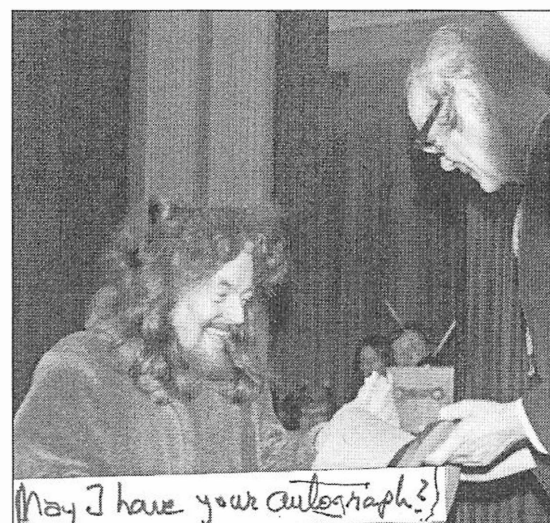 May I have your autograph?)